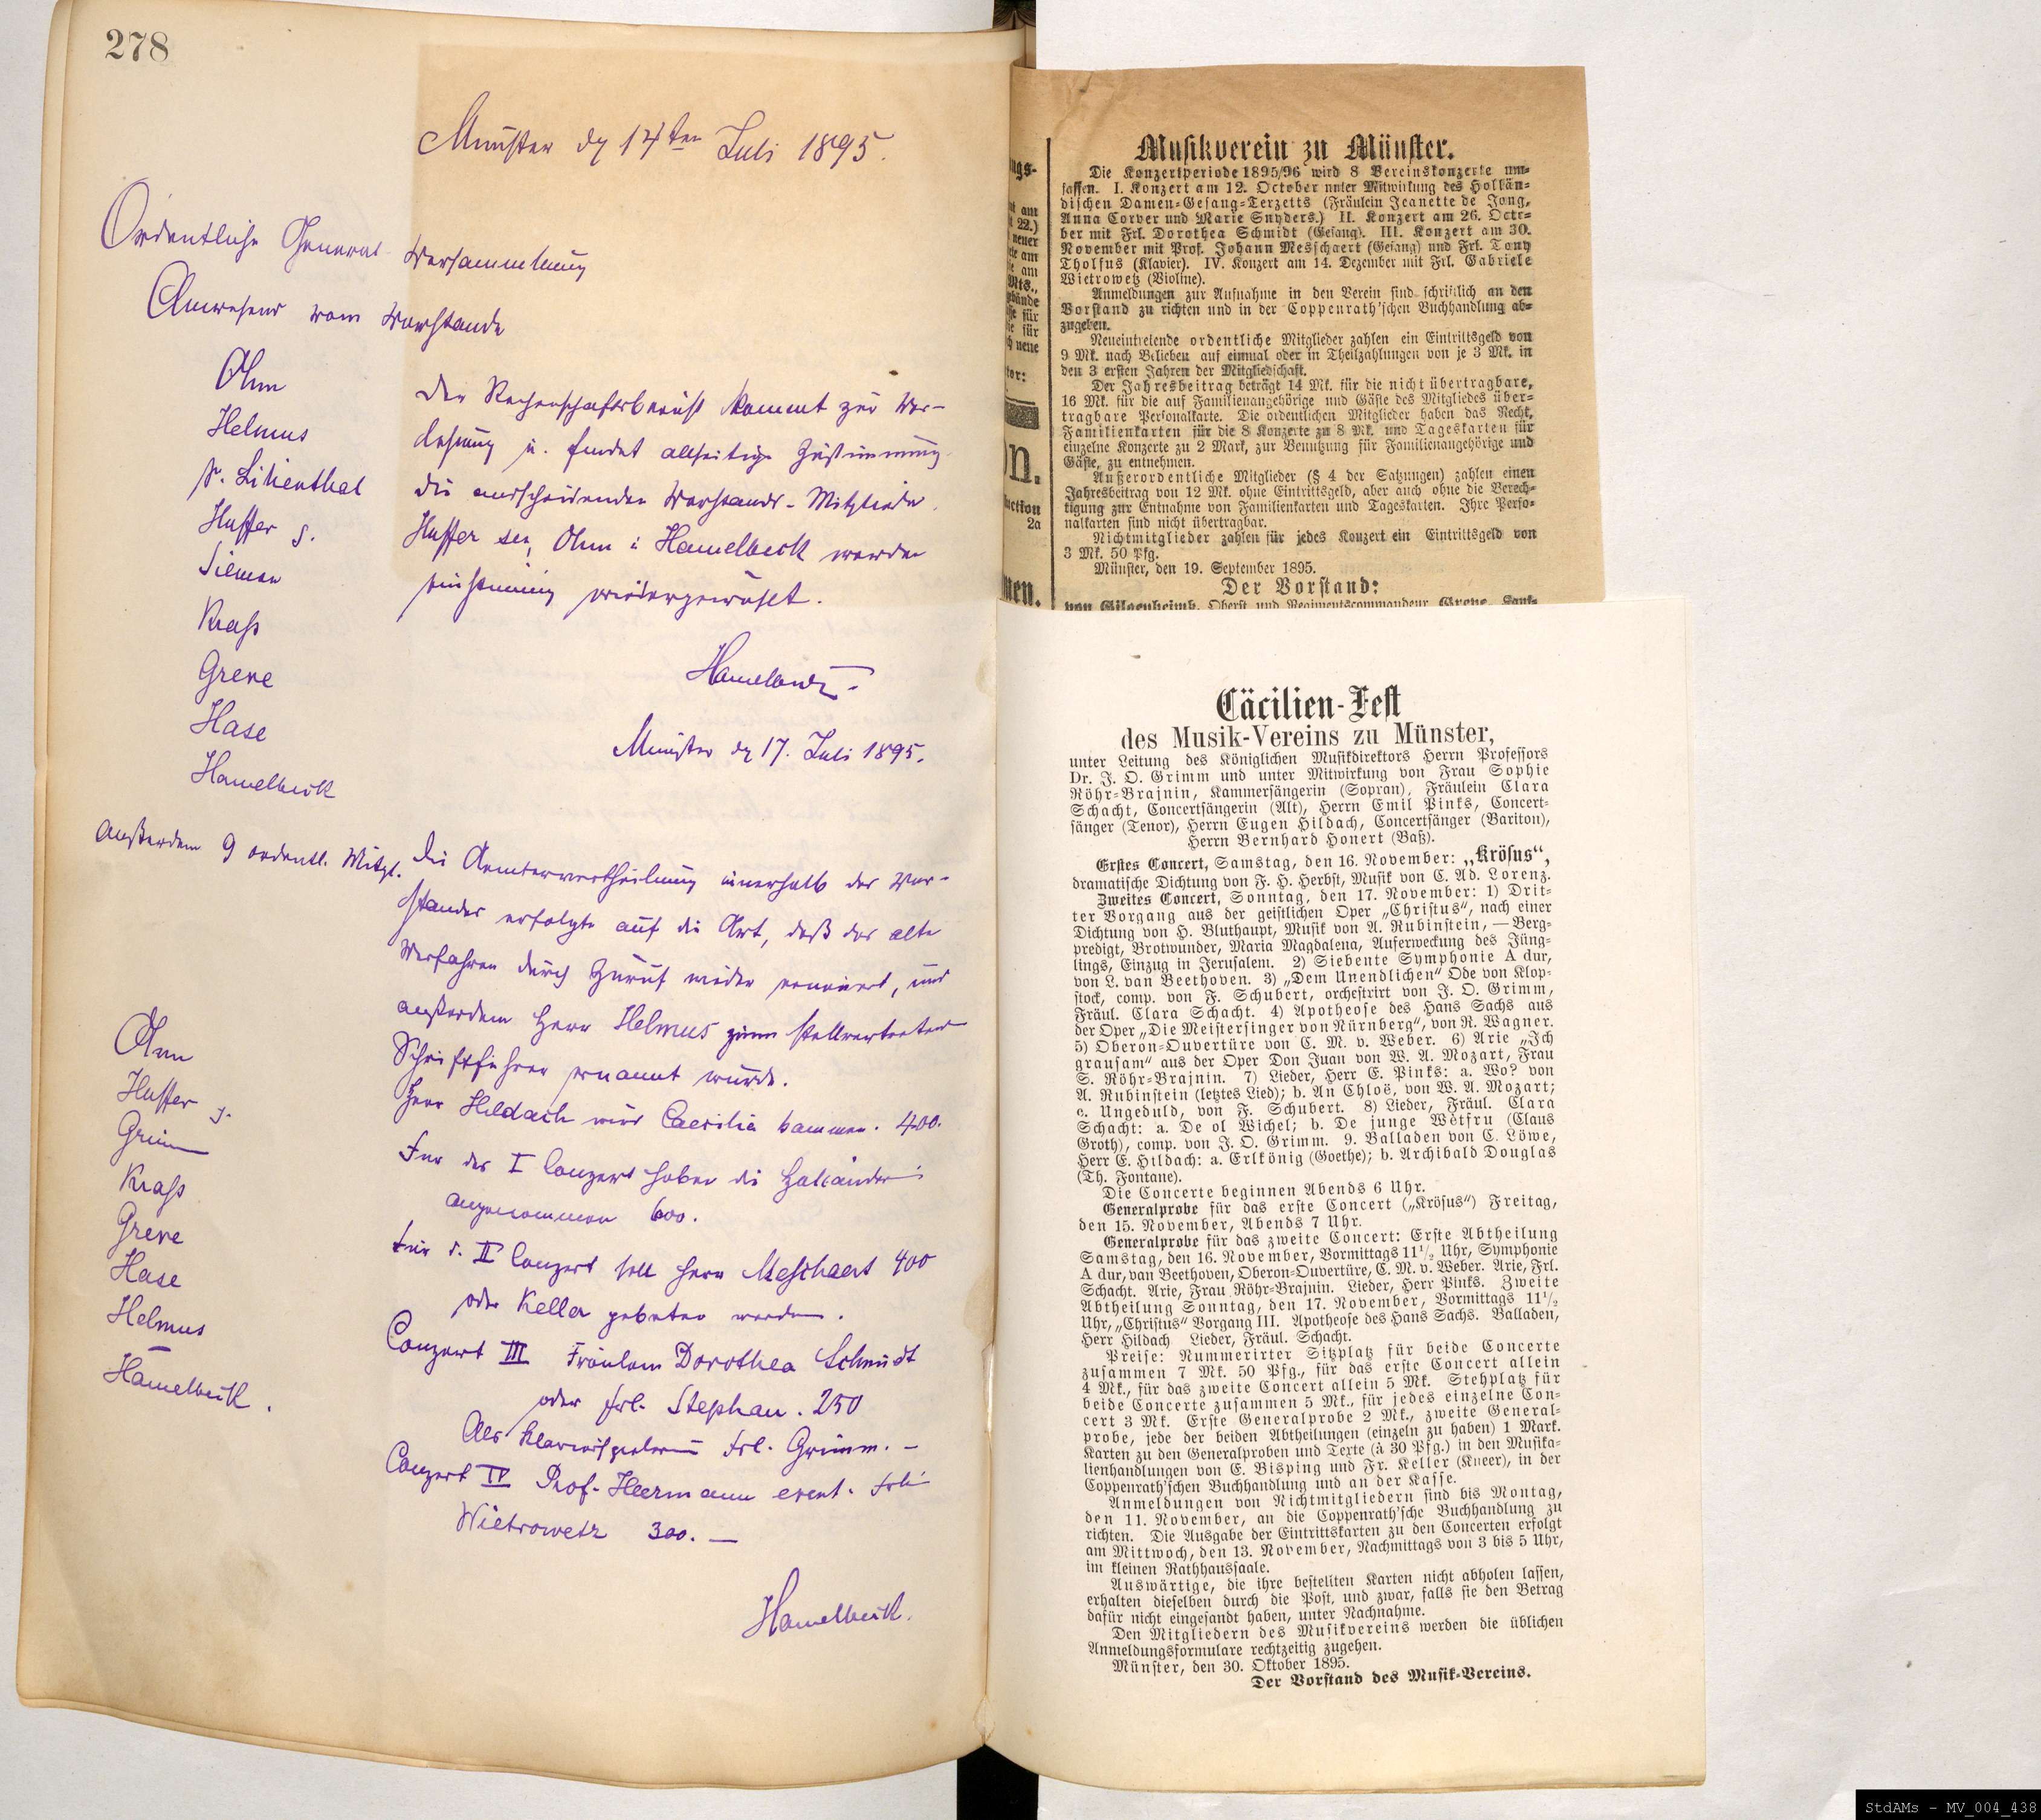 278
Münster dn 14ten Juli 1895.
Ordentliche General-Versammlung
Anwesend vom Vorstande
Ohm
Helmus
v. Lilienthal
Hüffer j.
Siemon
Krass
Greve
Hase
Hamelbeck
außerdem 9 ordentl. Mitgl.
Der Rechenschaftsbericht kommt zur Ver-
lesung u. findet allseitige Zustimmung.
Die ausscheidenden Vorstands-Mitglieder
Hüffer sen, Ohm & Hamelbeck werden
einstimmig wiedergewählt.
Hamelbeck
Münster dn 17. Juli 1895.
Die Aemterverteilung innerhalb des Vor-
standes erfolgte auf die Art, daß das alte
Verfahren durch Zuruf wieder erneuert, und
außerdem Herr Helmus zum stellvertreten
Schriftführer ernannt wurde.
Herr Hildach wird Caecilia kommen. 400.
Für das I Conzert haben die Holländer
angenommen 600.
Für d. II Conzert soll Herr Meschaert 400
oder Keller gebeten werden.
Conzert III Fräulein Dorothea Schmidt
oder Frl. Stephan. 250
Als Klavierspielerin Frl. Grimm. –
Conzert IV Prof. Heermann event. Frl.
Wietrowetz 300. —
Hamelbeck.
Ohm
Hüffer j.
Grimm
Krass
Greve
Hase
Helmus
Hamelbeck.
ngs-
t 22.)
neuer
te am
Mts.,
bände
für
neue
tor:
on.
uction
2a
men.
Musikverein zu Münster.
Die Konzertperiode 1895/96 wird 8 Vereinskonzerte um-
fassen. I. Konzert am 12. October unter Mitwirkung des Hollän-
dischen Damen-Gesang-Terzetts (Fräulein Jeanette de Jong,
Anna Corver und Marie Snyders.) II. Konzert am 26. Octo-
ber mit Frl. Dorothea Schmidt (Gesang). III. Konzert am 30.
November mit Prof. Johann Messchaert (Gesang) und Frl. Tony
Tholfus (Klavier). IV. Konzert am 14. Dezember mit Frl. Gabriele
Wietrowetz (Violine).
Anmeldungen zur Aufnahme in den Verein sind schriftlich an den
Vorstand zu richten und in der Coppenrath'schen Buchhandlung ab-
zugeben.
Neueintretende ordentliche Mitglieder zahlen ein Eintrittsgeld von
9 Mk. nach Belieben auf einmal oder in Theilzahlungen von je 3 Mk. in
den 3 ersten Jahren der Mitgliedschaft.
Der Jahresbeitrag beträgt 14 Mk. für die nicht übertragbare,
16 Mk. für die auf Familienangehörige und Gäste des Mitgliedes über-
tragbare Personalkarte. Die ordentlichen Mitglieder haben das Recht,
Familienkarten für die 8 Konzerte zu 8 Mk. und Tageskarten für
einzelne Konzerte zu 2 Mark, zur Benutzung für Familienangehörige und
Gäste, zu entnehmen.
Außerordentliche Mitglieder (§ 4 der Satzungen) zahlen einen
Jahresbeitrag von 12 Mk. ohne Eintrittsgeld, aber auch ohne die Berech-
tigung zur Entnahme von Familienkarten und Tageskarten. Ihre Perso-
nalkarten sind nicht übertragbar.
Nichtmitglieder zahlen für jedes Konzert ein Eintrittsgeld von
3 Mk. 50 Pfg.
Münster, den 19. September 1895.
Der Vorstand:
von Gilgenheimb, Oberst und Regimentscommandeur, Greve, Bank-
Cäcilien-Fest
des Musik-Vereins zu Münster,
unter Leitung des Königlichen Musikdirektors Herrn Professors
Dr. J. O. Grimm und unter Mitwirkung von Frau Sophie
Röhr-Brajnin, Kammersängerin (Sopran), Fräulein Clara
Schacht, Concertsängerin (Alt), Herrn Emil Pinks, Concert-
sänger (Tenor), Herrn Eugen Hildach, Concertsänger (Bariton),
Herrn Bernhard Honert (Baß).
Erstes Concert, Samstag, den 16. November: „Krösus“,
dramatische Dichtung von F. H. Herbst, Musik von C. Ad. Lorenz.
Zweites Concert, Sonntag, den 17. November: 1) Drit-
ter Vorgang aus der geistlichen Oper „Christus“, nach einer
Dichtung von H. Bluthaupt, Musik von A. Rubinstein, — Berg-
predigt, Brotwunder, Maria Magdalena, Auferweckung des Jüng-
lings, Einzug in Jerusalem. 2) Siebente Symphonie A dur,
von L. van Beethoven. 3) „Dem Unendlichen“ Ode von Klop-
stock, comp. von F. Schubert, orchestrirt von J. O. Grimm,
Fräul. Clara Schacht. 4) Apotheose des Hans Sachs aus
der Oper „Die Meistersinger von Nürnberg“, von R. Wagner.
5) Oberon-Ouvertüre von C. M. v. Weber. 6) Arie „Ich
grausam“ aus der Oper Don Juan von W. A. Mozart, Frau
S. Röhr-Brajnin. 7) Lieder, Herr E. Pinks: a. Wo? von
A. Rubinstein (letztes Lied); b. An Chloë, von W. A. Mozart;
c. Ungeduld, von F. Schubert. 8) Lieder, Fräul. Clara
Schacht: a. De ol Wichel; b. De junge Wêtfru (Claus
Groth), comp. von J. O. Grimm. 9. Balladen von C. Löwe,
Herr E. Hildach: a. Erlkönig (Goethe); b. Archibald Douglas
(Th. Fontane).
Die Concerte beginnen Abends 6 Uhr.
Generalprobe für das erste Concert („Krösus“) Freitag,
den 15. November, Abends 7 Uhr.
Generalprobe für das zweite Concert: Erste Abtheilung
Samstag, den 16. November, Vormittags 11½ Uhr, Symphonie
A dur, van Beethoven, Oberon-Ouvertüre, C. M. v. Weber. Arie, Frl.
Schacht. Arie, Frau Röhr-Brajnin. Lieder, Herr Pinks. Zweite
Abtheilung Sonntag, den 17. November, Vormittags 11½
Uhr, „Christus“ Vorgang III. Apotheose des Hans Sachs. Balladen,
Herr Hildach Lieder, Fräul. Schacht.
Preise: Nummerirter Sitzplatz für beide Concerte
zusammen 7 Mk. 50 Pfg., für das erste Concert allein
4 Mk., für das zweite Concert allein 5 Mk. Stehplatz für
beide Concerte zusammen 5 Mk., für jedes einzelne Con-
cert 3 Mk. Erste Generalprobe 2 Mk., zweite General-
probe, jede der beiden Abtheilungen (einzeln zu haben) 1 Mark.
Karten zu den Generalproben und Texte (à 30 Pfg.) in den Musika-
lienhandlungen von E. Bisping und Fr. Keller (Kneer), in der
Coppenrath'schen Buchhandlung und an der Kasse.
Anmeldungen von Nichtmitgliedern sind bis Montag,
den 11. November, an die Coppenrath'sche Buchhandlung zu
richten. Die Ausgabe der Eintrittskarten zu den Concerten erfolgt
am Mittwoch, den 13. November, Nachmittags von 3 bis 5 Uhr,
im kleinen Rathhaussaale.
Auswärtige, die ihre bestellten Karten nicht abholen lassen,
erhalten dieselben durch die Post, und zwar, falls sie den Betrag
dafür nicht eingesandt haben, unter Nachnahme.
Den Mitgliedern des Musikvereins werden die üblichen
Anmeldungsformulare rechtzeitig zugehen.
Münster, den 30. Oktober 1895.
Der Vorstand des Musik-Vereins.
StdAMs - MV_004_438